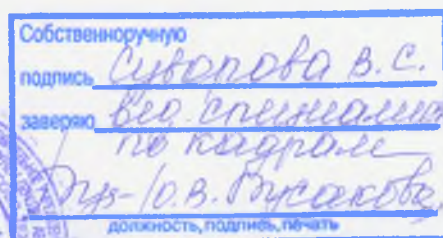 Собственноручную
подпись Суворова В.С.
заверяю вед. специалист
по кадрам
Ю.В. Русакова
должность, подпись, печать